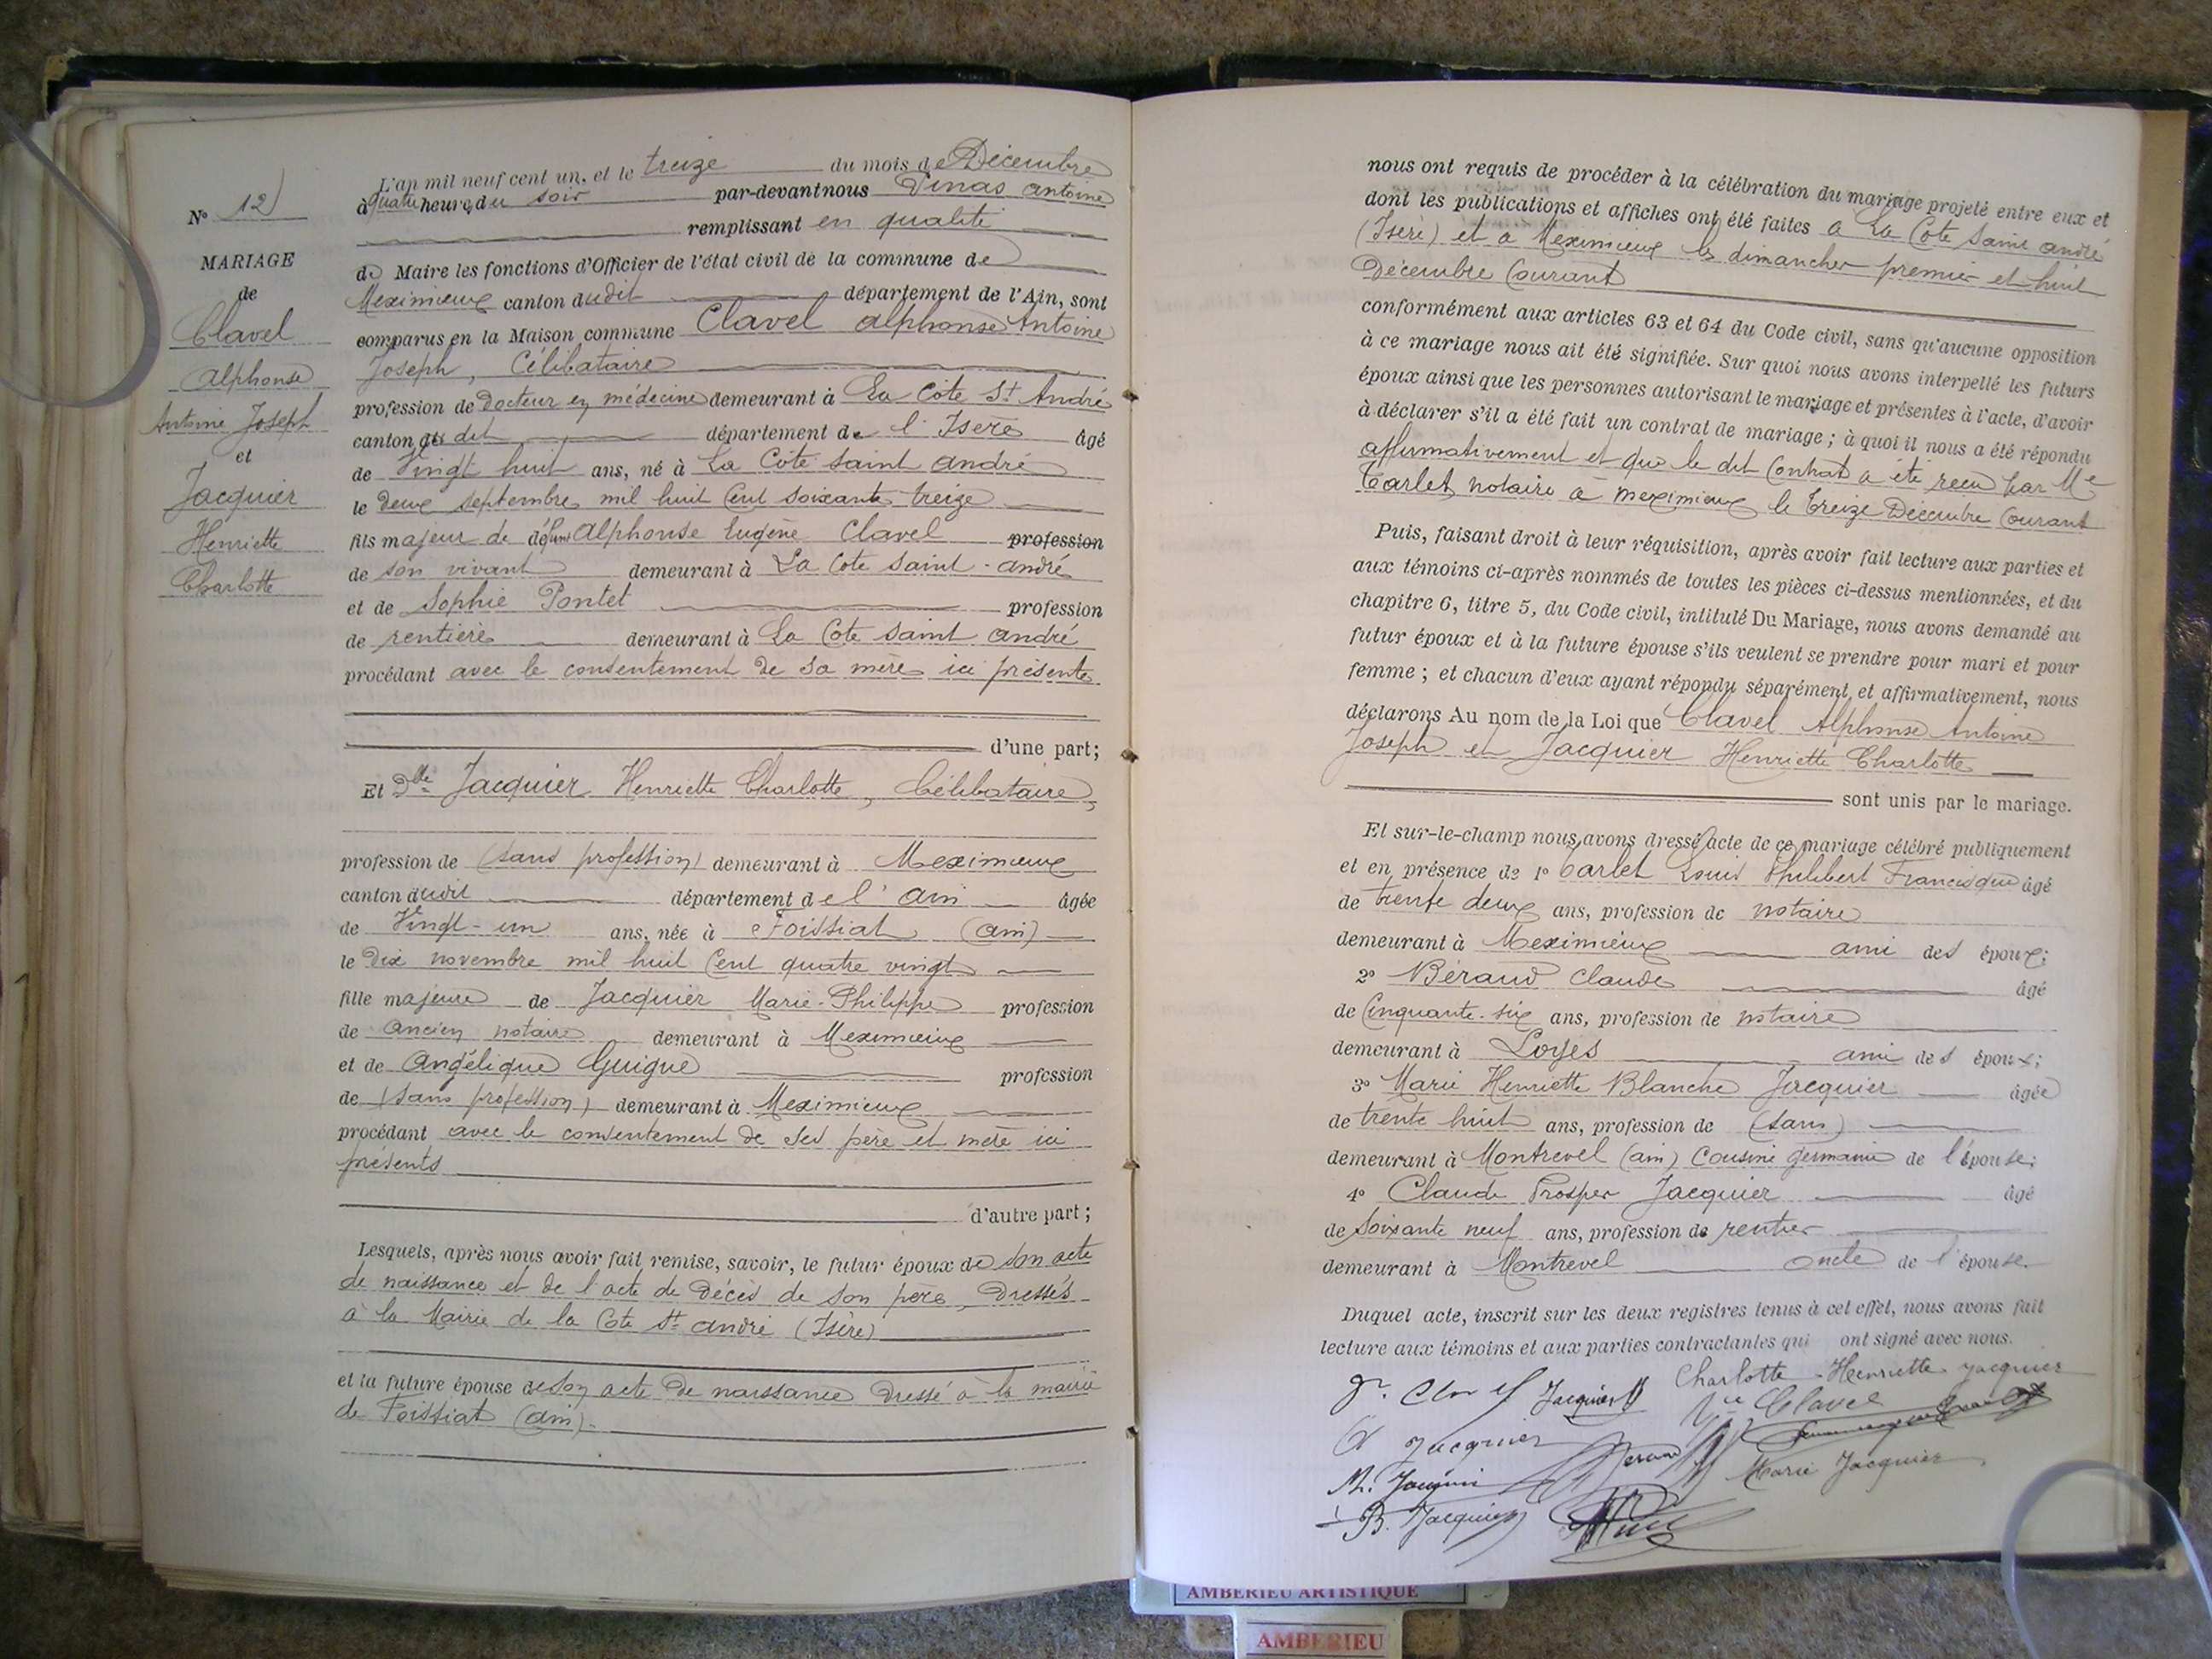 N° 12
MARIAGE
de
Clavel
Alphonse
Antoine Joseph
et
Jacquier
Henriette
Charlotte
L'an mil neuf cent un, et le treize du mois de Décembre
à quatre heures du soir par-devant nous Vinas antoine
remplissant en qualité
de Maire les fonctions d'Officier de l'état civil de la commune de
Meximieux canton dudit département de l'Ain, sont
comparus en la Maison commune Clavel alphonse Antoine
Joseph, Célibataire
profession de Docteur en médecine demeurant à La Cote St. André
canton du dit département de l'Isère âgé
de Vingt huit ans, né à La Côte Saint andré
le deux septembre mil huit Cent soixante treize
fils majeur de défunt Alphonse Eugène Clavel profession
de son vivant demeurant à La Cote Saint-andré
et de Sophie Pontet profession
de rentière demeurant à La Cote Saint andré
procédant avec le consentement de sa mère ici présente
d'une part;
Et Dlle Jacquier Henriette Charlotte, Célibataire,
profession de (sans profession) demeurant à Meximieux
canton dudit département de l'ain âgée
de Vingt-un ans, née à Foissiat (ain)
le Dix novembre mil huit Cent quatre vingt
fille majeure de Jacquier Marie-Philippe profession
de ancien notaire demeurant à Meximieux
et de Angélique Guigue profession
de (sans profession) demeurant à Meximieux
procédant avec le consentement de ses père et mère ici
présents
d'autre part;
Lesquels, après nous avoir fait remise, savoir, le futur époux de son acte
de naissance et de l'acte de décès de son père, dressés
à la Mairie de la Cote St andré (Isère)
et la future épouse de son acte de naissance dressé à la mairie
de Foissiat (ain).
nous ont requis de procéder à la célébration du mariage projeté entre eux et
dont les publications et affiches ont été faites a La Cote Saint andré
(Isère) et a Meximieux les dimanches premier et huit
Décembre Courant
conformément aux articles 63 et 64 du Code civil, sans qu'aucune opposition
à ce mariage nous ait été signifiée. Sur quoi nous avons interpellé les futurs
époux ainsi que les personnes autorisant le mariage et présentes à l'acte, d'avoir
à déclarer s'il a été fait un contrat de mariage; à quoi il nous a été répondu
affirmativement et que le dit Contrat a été reçu par Me
Carlet notaire à meximieux le treize Décembre Courant
Puis, faisant droit à leur réquisition, après avoir fait lecture aux parties et
aux témoins ci-après nommés de toutes les pièces ci-dessus mentionnées, et du
chapitre 6, titre 5, du Code civil, intitulé Du Mariage, nous avons demandé au
futur époux et à la future épouse s'ils veulent se prendre pour mari et pour
femme; et chacun d'eux ayant répondu séparément et affirmativement, nous
déclarons Au nom de la Loi que Clavel Alphonse Antoine
Joseph et Jacquier Henriette Charlotte
sont unis par le mariage.
Et sur-le-champ nous avons dressé acte de ce mariage célébré publiquement
et en présence de 1° Carlet Louis Philibert Francisque âgé
de trente deux ans, profession de notaire
demeurant à Meximieux ami des époux;
2° Béraud Claude âgé
de Cinquante-six ans, profession de notaire
demeurant à Loyes ami des époux;
3° Marie Henriette Blanche Jacquier âgée
de trente huit ans, profession de (sans)
demeurant à Montrevel (ain) Cousine germaine de l'épouse;
4° Claude Prosper Jacquier âgé
de Soixante neuf ans, profession de rentier
demeurant à Montrevel oncle de l'épouse.
Duquel acte, inscrit sur les deux registres tenus à cet effet, nous avons fait
lecture aux témoins et aux parties contractantes qui ont signé avec nous.
Charlotte-Henriette Jacquier
Dr. Clavel Jacquier Vve Clavel
Jacquier
Beraud
Marie Jacquier
B. Jacquier
AMBERIEU ARTISTIQUE
AMBERIEU